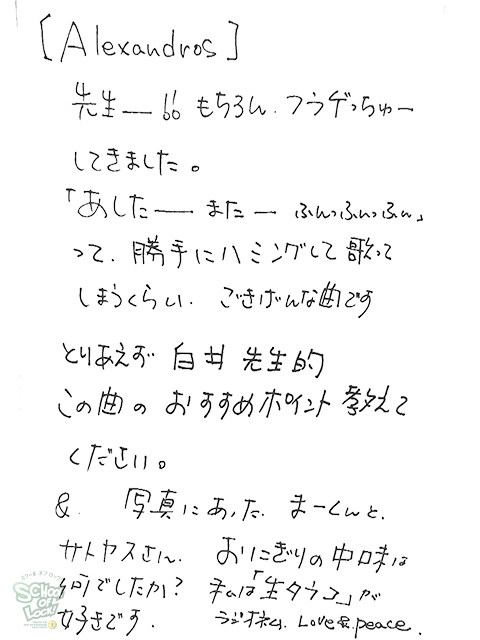 [Alexandros]
先生──!! もちろん、フラゲっちゅー
してきました。
「あした── また─ ふんっふんっふん」
って、勝手にハミングして歌って
しまうくらい、ごきげんな曲です
とりあえず 白井 先生的
この曲の おすすめポイント 教えて
ください。
& 写真にあった まーくんと、
サトヤスさん、おにぎりの中味は
何でしたか? 私は「生タラコ」が
好きです。 Love & peace.
SCHOOL OF LOCK!